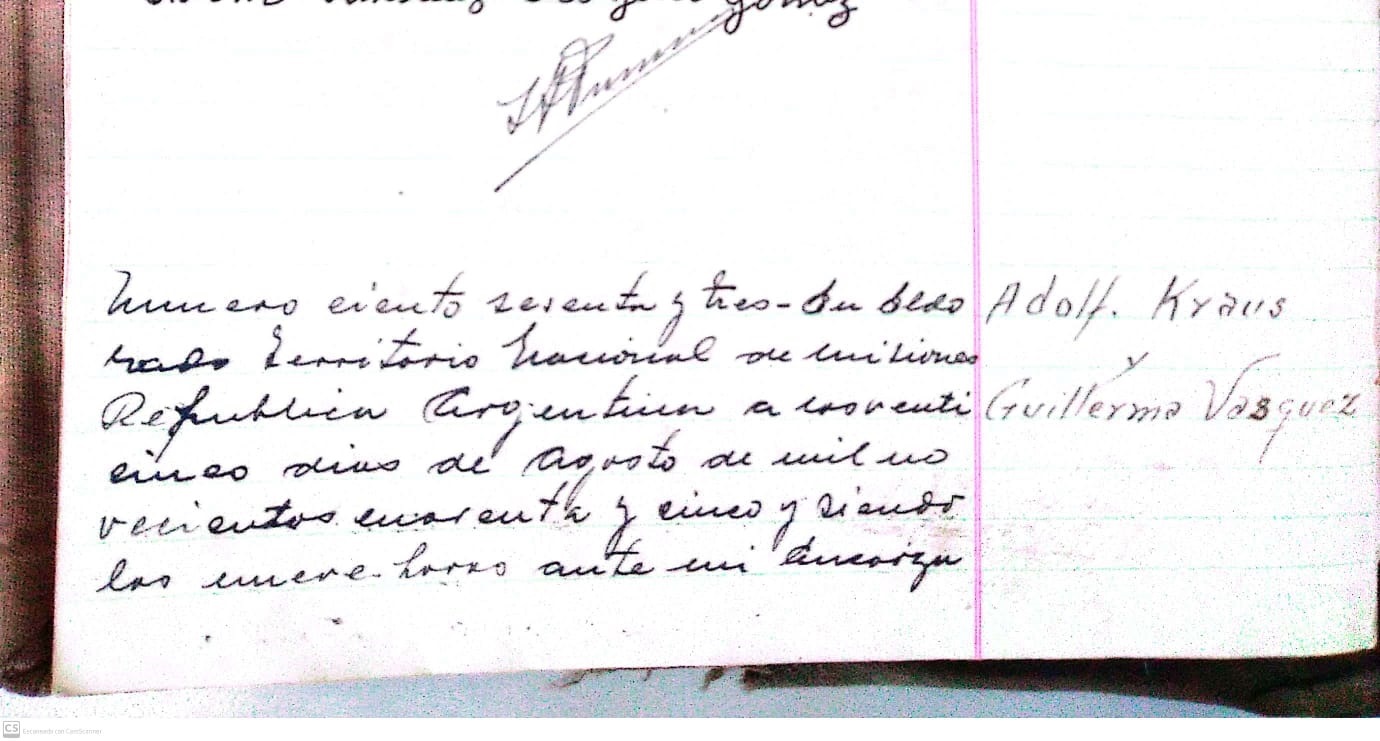 Gomez
Numero ciento sesenta y tres - En Eldo
rado Territorio Nacional de Misiones
Republica Argentina a los venti
cinco dias de Agosto de mil no
vecientos cuarenta y cinco y siendo
las nueve horas ante mi Encarga
Adolf. Kraus
y
Guillerma Vasquez
CS Escaneado con CamScanner